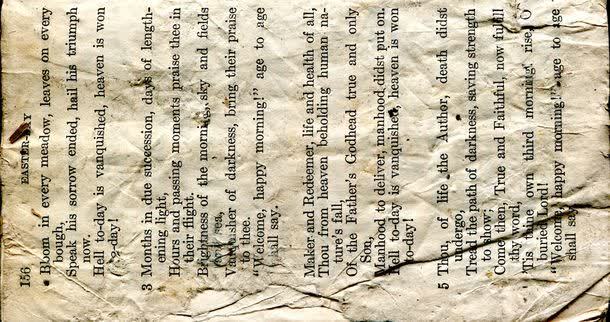 156
EASTER-DAY
Bloom in every meadow, leaves on every
bough,
Speak his sorrow ended, hail his triumph
now.
Hell to-day is vanquished, heaven is won
to-day!
3 Months in due succession, days of length-
ening light,
Hours and passing moments praise thee in
their flight.
Brightness of the morning, sky and fields
sea,
Vanquisher of darkness, bring their praise
to thee.
"Welcome, happy morning!" age to age
shall say.
Maker and Redeemer, life and health of all,
Thou from heaven beholding human na-
ture's fall,
Of the Father's Godhead true and only
Son,
Manhood to deliver, manhood didst put on.
Hell to-day is vanquished, heaven is won
to-day!
5 Thou, of life the Author, death didst
undergo,
Tread the path of darkness, saving strength
to show;
Come then, True and Faithful, now fulfil
thy word,
'Tis thine own third morning! rise, O
buried Lord!
"Welcome, happy morning!" age to age
shall say